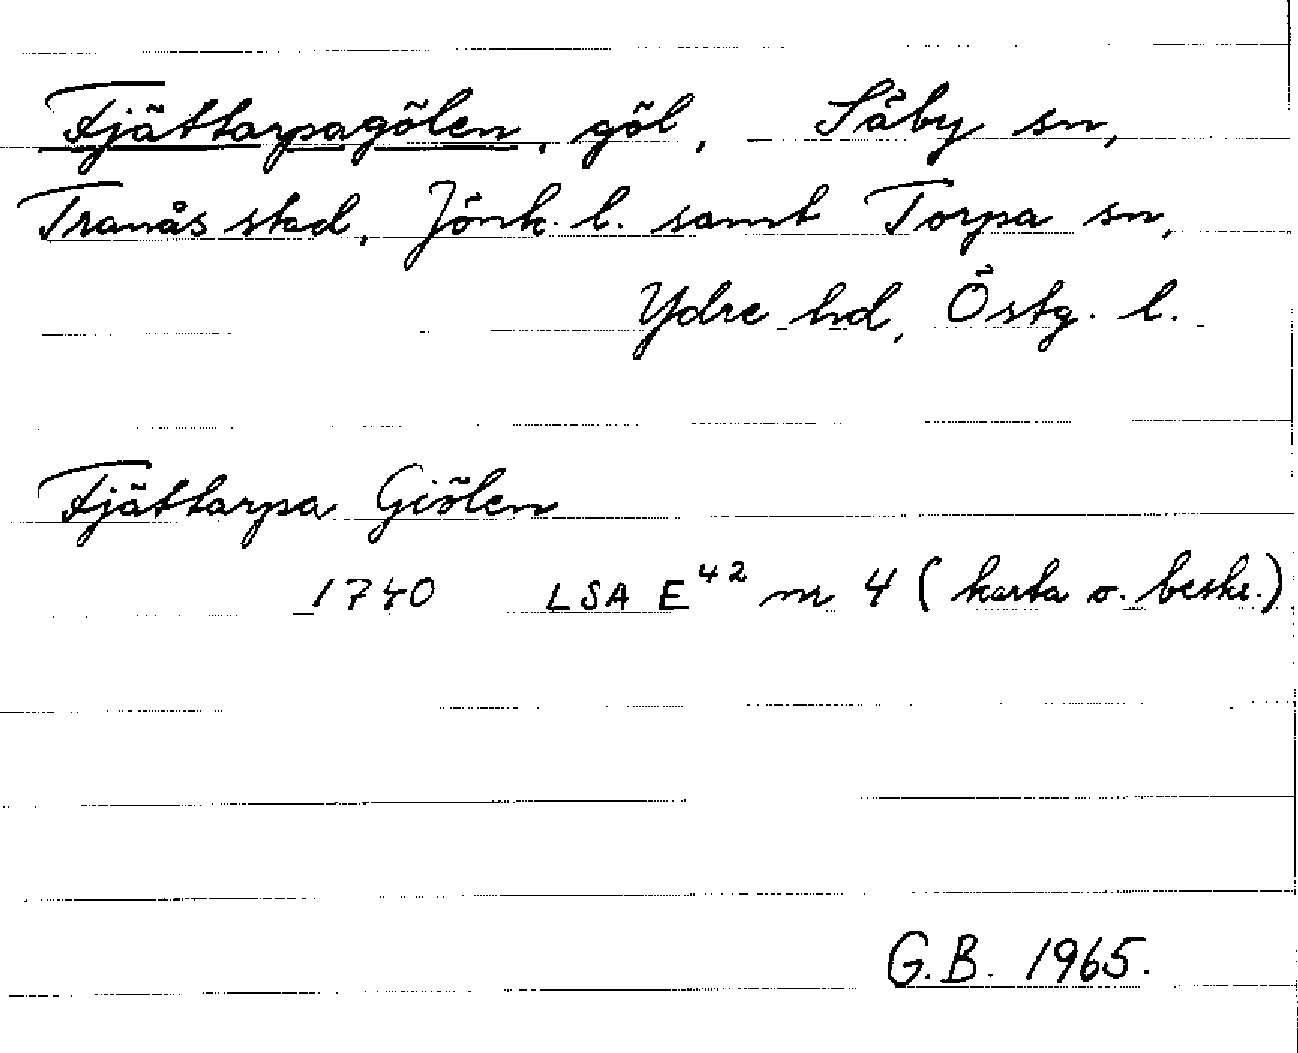 Fjättarpagölen, göl, Säby sn,
Tranås stad, Jönk. l. samt Torpa sn,
Ydre hd, Östg. l.
Fjättarpa Giölen
1740 LSA E42 nr 4 (karta o. beskr.)
G.B. 1965.